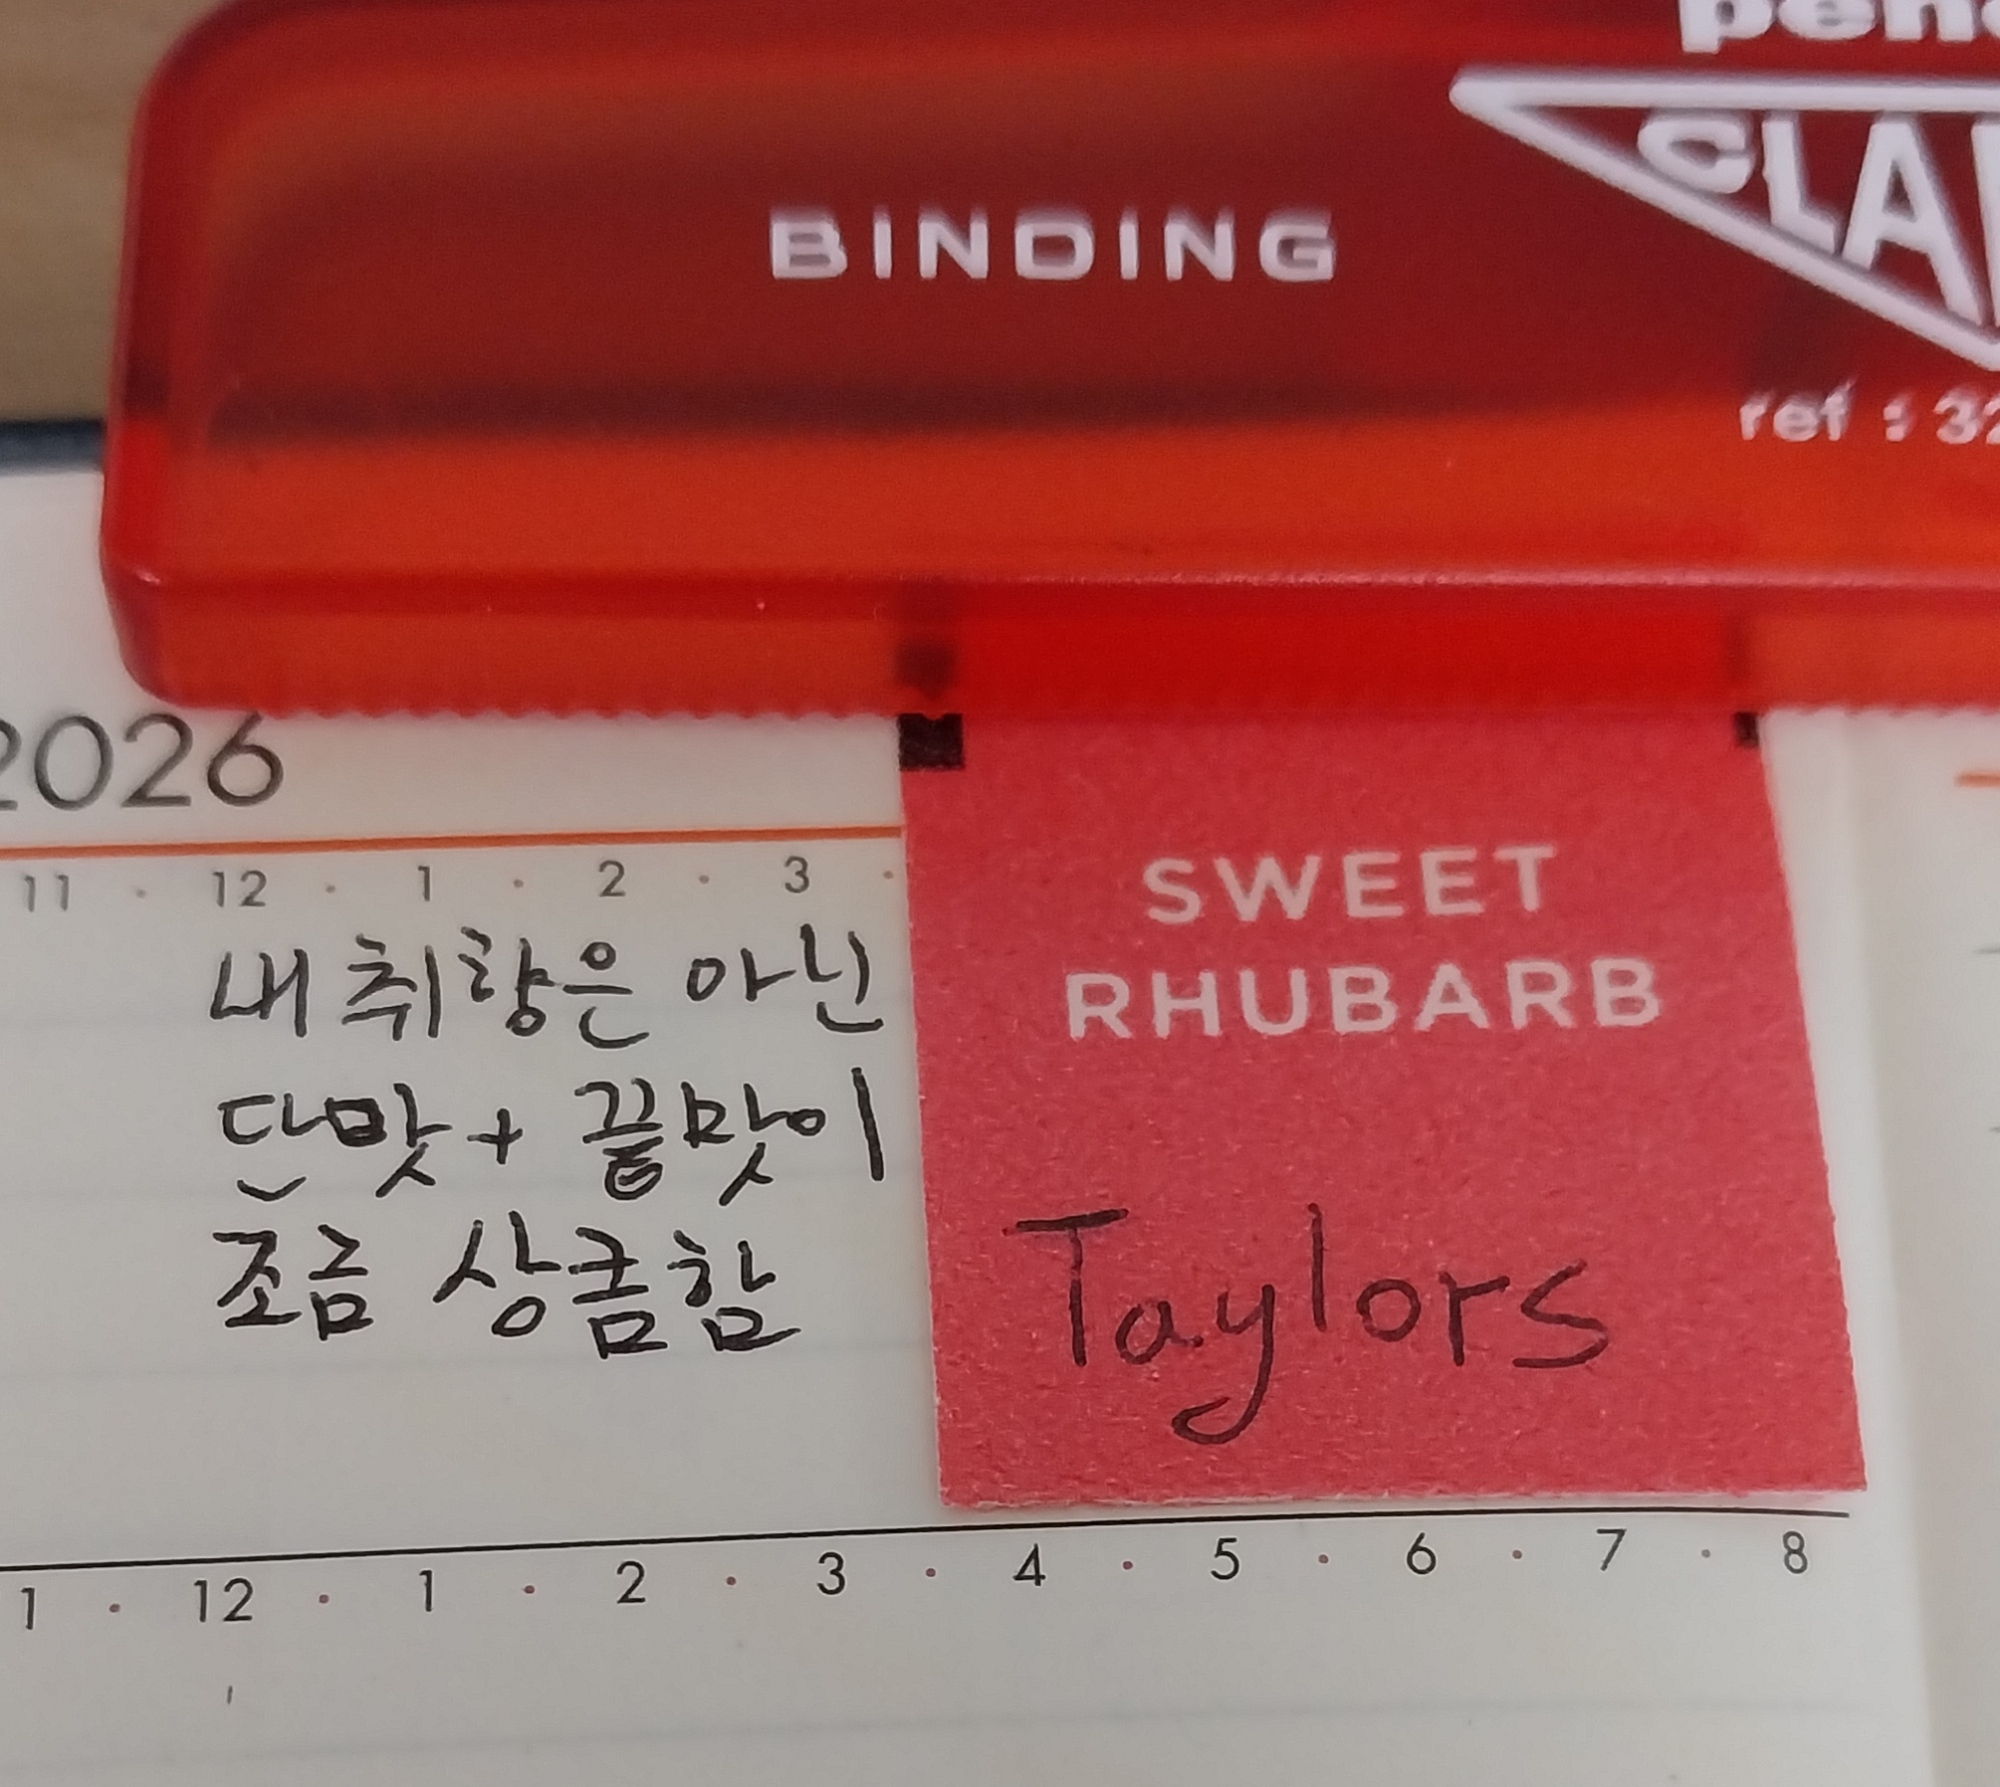 BINDING
ref : 32
2026
11 · 12 · 1 · 2 · 3 ·
내 취향은 아닌
단맛 + 끝맛이
조금 상큼함
SWEET
RHUBARB
Taylors
1 · 12 · 1 · 2 · 3 · 4 · 5 · 6 · 7 · 8